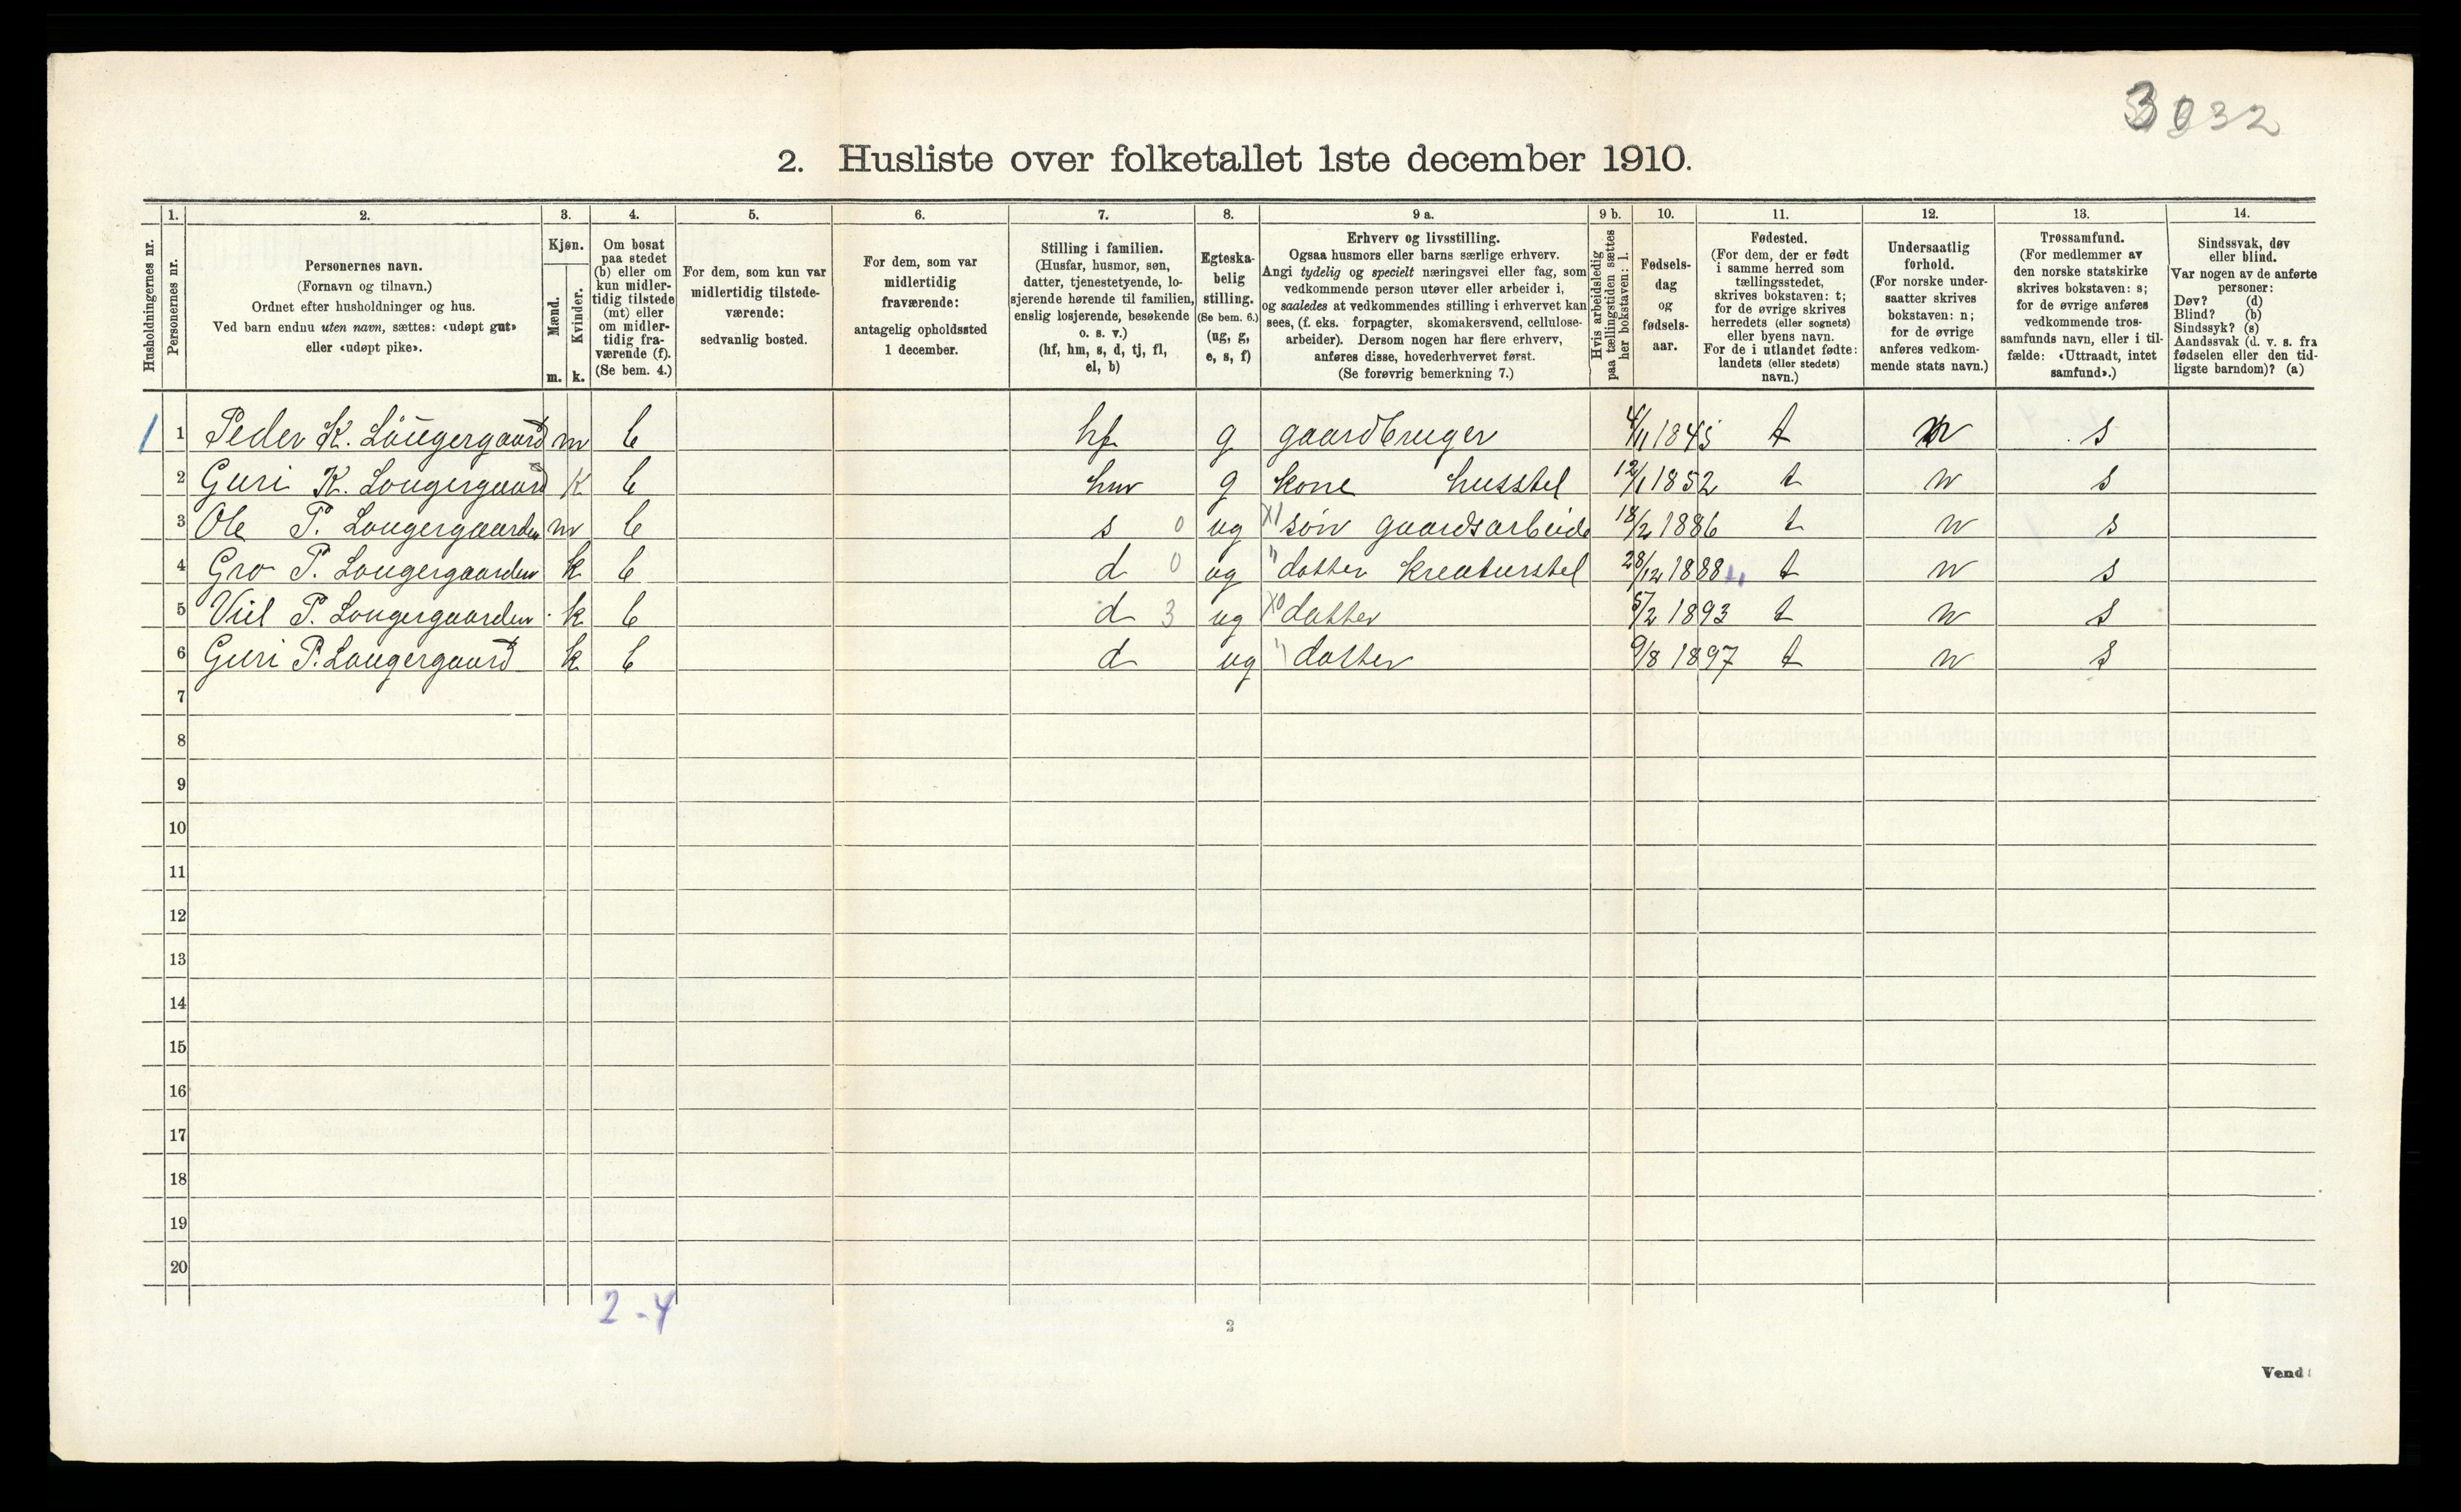 3032
2. Husliste over folketallet 1ste december 1910.
Husholdningernes nr.
1. Personernes nr.
2. Personernes navn. (Fornavn og tilnavn.) Ordnet efter husholdninger og hus. Ved barn endnu uten navn, sættes: «udøpt gut» eller «udøpt pike».
3. Kjøn. Mænd. m. Kvinder. k.
4. Om bosat paa stedet (b) eller om kun midlertidig tilstede (mt) eller om midlertidig fraværende (f). (Se bem. 4.)
5. For dem, som kun var midlertidig tilstedeværende: sedvanlig bosted.
6. For dem, som var midlertidig fraværende: antagelig opholdssted 1 december.
7. Stilling i familien. (Husfar, husmor, søn, datter, tjenestetyende, losjerende hørende til familien, enslig losjerende, besøkende o. s. v.) (hf, hm, s, d, tj, fl, el, b)
8. Egteskabelig stilling. (Se bem. 6.) (ug, g, e, s, f)
9 a. Erhverv og livsstilling. Ogsaa husmors eller barns særlige erhverv. Angi tydelig og specielt næringsvei eller fag, som vedkommende person utøver eller arbeider i, og saaledes at vedkommendes stilling i erhvervet kan sees, (f. eks. forpagter, skomakersvend, cellulosearbeider). Dersom nogen har flere erhverv, anføres disse, hovederhvervet først. (Se forøvrig bemerkning 7.)
9 b. Hvis arbeidsledig paa tællingstiden sættes her bokstaven: l.
10. Fødselsdag og fødselsaar.
11. Fødested. (For dem, der er født i samme herred som tællingsstedet, skrives bokstaven: t; for de øvrige skrives herredets (eller sognets) eller byens navn. For de i utlandet fødte: landets (eller stedets) navn.)
12. Undersaatlig forhold. (For norske undersaatter skrives bokstaven: n; for de øvrige anføres vedkommende stats navn.)
13. Trossamfund. (For medlemmer av den norske statskirke skrives bokstaven: s; for de øvrige anføres vedkommende trossamfunds navn, eller i tilfælde: «Uttraadt, intet samfund».)
14. Sindssvak, døv eller blind. Var nogen av de anførte personer: Døv? (d) Blind? (b) Sindssyk? (s) Aandssvak (d. v. s. fra fødselen eller den tidligste barndom)? (a)
1 1 Peder K. Lougergaard m b hf g gaardbruger 4/11 1845 t n s
2 Guri K. Lougergaard k b hm g kone husstel 12/1 1852 t n s
3 Ole P. Lougergaarden m b s 0 ug X1 søn gaardsarbeide 18/2 1886 t n s
4 Gro P. Lougergaarden k b d 0 ug " datter kreaturstel 28/12 1888 t n s
5 P. Lougergaarden k b d 3 ug X0 datter 5/2 1893 t n s
6 Guri P. Lougergaard k b d ug " datter 9/8 1897 t n s
7
8
9
10
11
12
13
14
15
16
17
18
19
20
2 - 4
2
Vend!